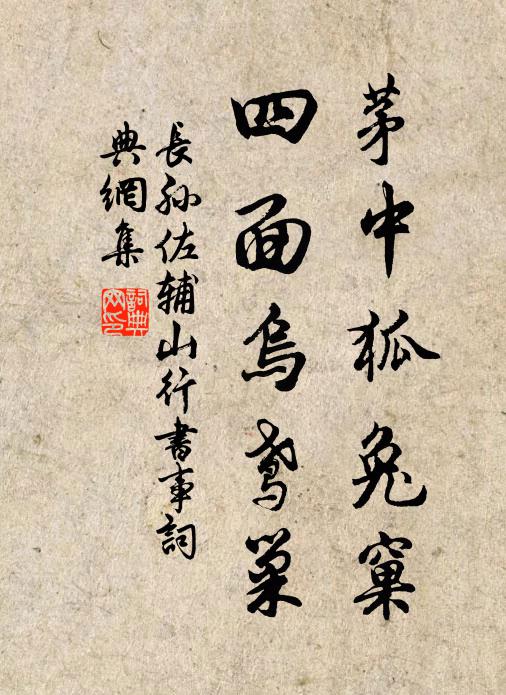 茅中狐兔窠
四面乌鸢巢
長孙佐辅山行書事詞
典網集
詞典網印